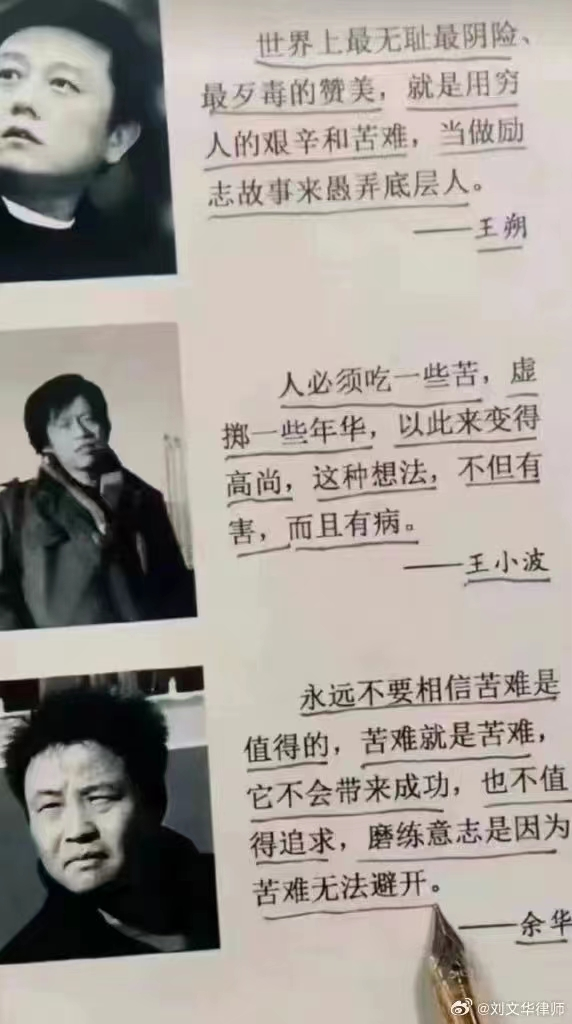 世界上最无耻最阴险、
最歹毒的赞美，就是用穷
人的艰辛和苦难，当做励
志故事来愚弄底层人。
——王朔
人必须吃一些苦，虚
掷一些年华，以此来变得
高尚，这种想法，不但有
害，而且有病。
——王小波
永远不要相信苦难是
值得的，苦难就是苦难，
它不会带来成功，也不值
得追求，磨练意志是因为
苦难无法避开。
——余华
@刘文华律师